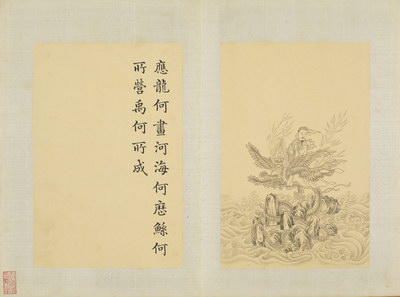 應龍何畫河海何歷鯀何
所營禹何所成